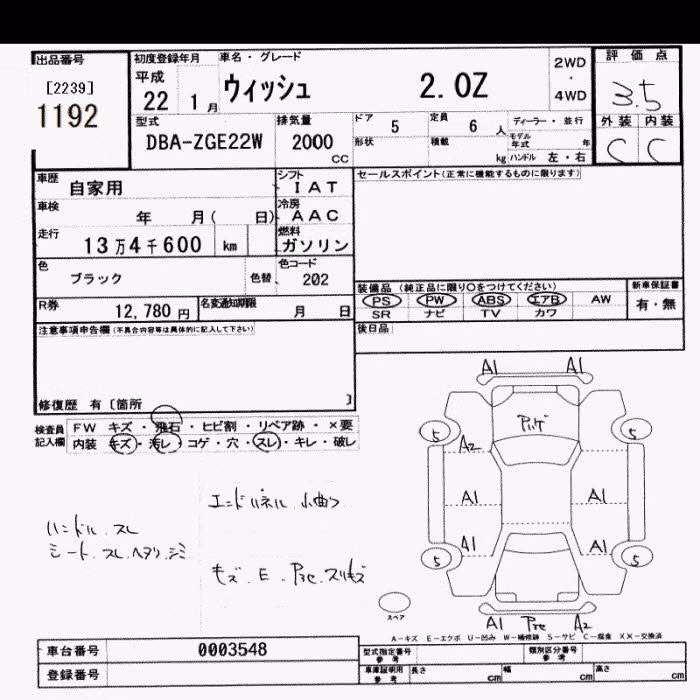 出品番号
[2239]
1192
初度登録年月
平成
22 1月
車名・グレード
ウィッシュ 2.0Z
2WD
・
4WD
評価点
3.5
外装 内装
C C
型式
DBA-ZGE22W
排気量
2000
CC
ドア 5
形状
定員 6 人
積載 kg
ディーラー・並行
モデル年式 年
ハンドル 左・右
車歴 自家用
シフト
IAT
車検 年 月( 日)
冷房
AAC
走行 13万4千600 km
燃料
ガソリン
色 ブラック 色替
色コード
202
R券 12,780円
名変通知期限 月 日
セールスポイント(正常に機能するものに限ります)
装備品(純正品に限り○をつけてください)
PS PW ABS エアB AW
SR ナビ TV カワ
新車保証書
有・無
後日品
注意事項申告欄(不具合内容等は具体的に記入して下さい)
修復歴 有 [箇所 ]
検査員
記入欄
FW キズ・飛石・ヒビ割・リペア跡・×要
内装 キズ・汚レ・コゲ・穴・スレ・キレ・破レ
ハンドル スレ
シート スレ ヘタリ シミ
エンドパネル 小曲り
キズ E Pse スリキズ
A1 A1
5 5
A2
A1 A1
A1 A1
5 5
スペア
A1 Pse A2
A-キズ E-エクボ U-凹み W-補修跡 S-サビ C-腐食 XX-交換済
車台番号 0003548
登録番号
型式指定番号
参考
類別区分番号
参考
車庫証明用
参考
長さ cm
幅 cm
高さ cm